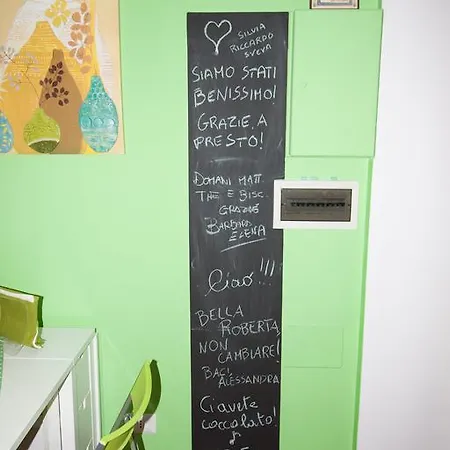 SILVIA
RICCARDO
SVEVA
SIAMO STATI
BENISSIMO!
GRAZIE A
PRESTO!
DOMANI MATT.
THE E BISC.
GRAZIE
BARBARA
ELENA
Ciao!!!
BELLA
ROBERTA
NON
CAMBIARE!
BACI,
ALESSANDRA
Ciavete
coccolato!